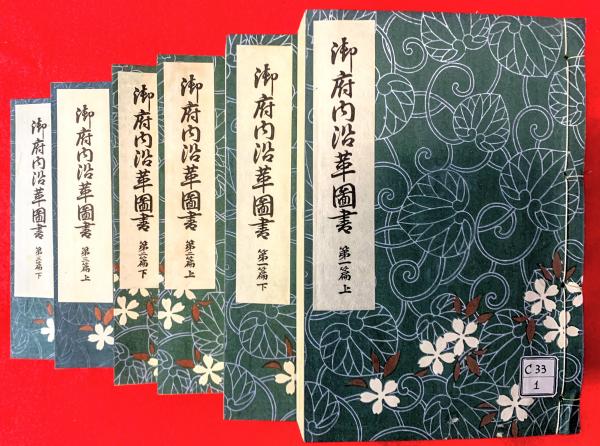 御府内沿革圖書 第一篇上
C33
1
御府内沿革圖書 第一篇下
御府内沿革圖書 第二篇上
御府内沿革圖書 第二篇下
御府内沿革圖書 第三篇上
御府内沿革圖書 第三篇下